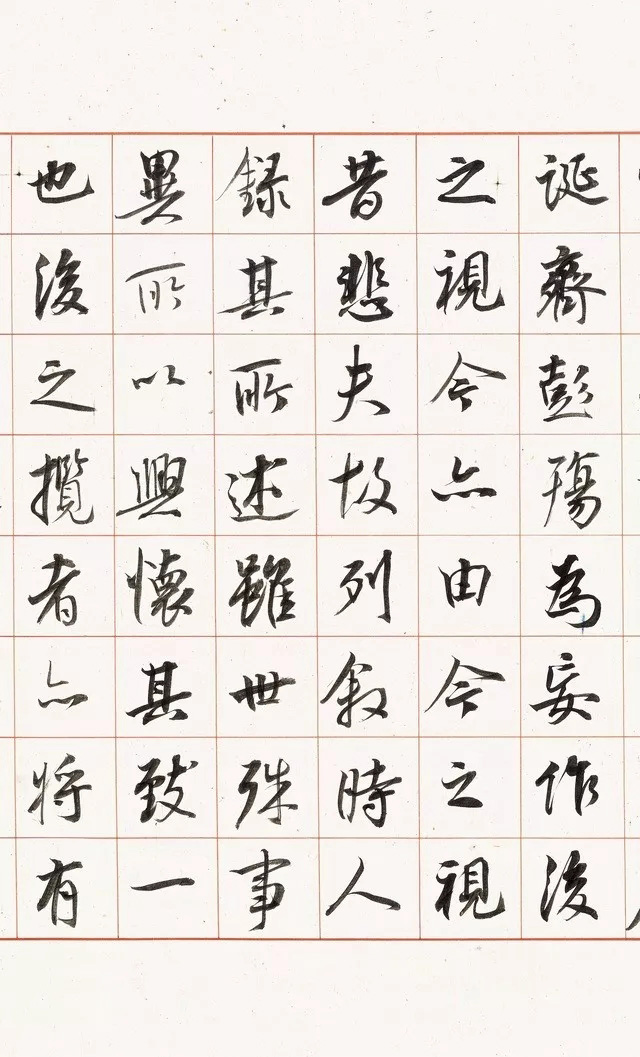 誕齊彭殤為妄作後
之視今亦由今之視
昔悲夫故列叙時人
錄其所述雖世殊事
異所以興懷其致一
也後之攬者亦將有